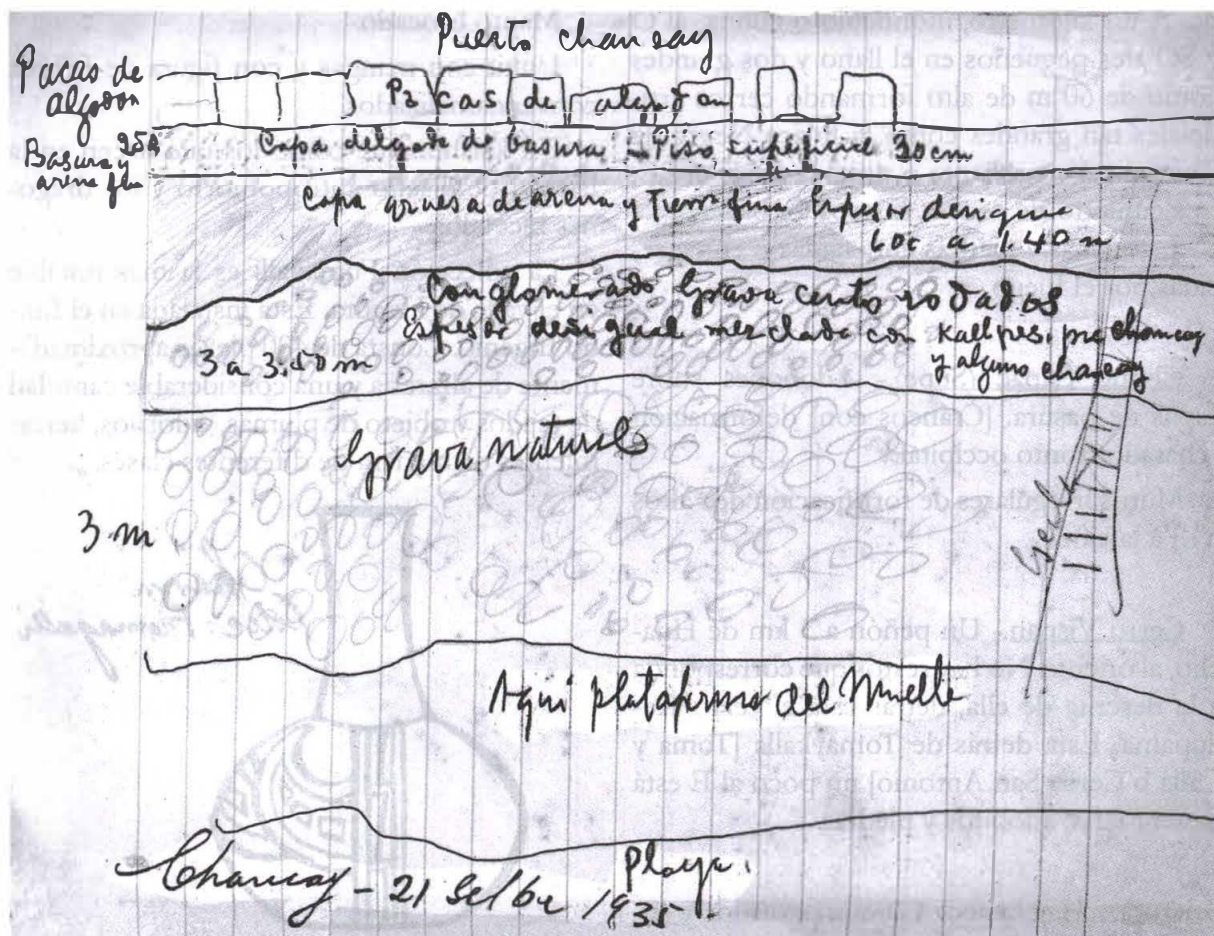 Puerto chancay
Pacas de
algodon
Pacas de algodon
Basura 25c
arena fina
Capa delgada de basuras Piso superficie 30cm
Capa gruesa de arena y Tierra fina Espesor desigual
60c a 1.40 m
Conglomerado Grava cantos rodados
Espesor desigual mezclada con Kallpes. pre chancay
y alguno chancay
3 a 3.50 m
Grava natural
3 m
Aqui plataforma del Muelle
Playa.
Chancay - 21 Setbe 1935 -